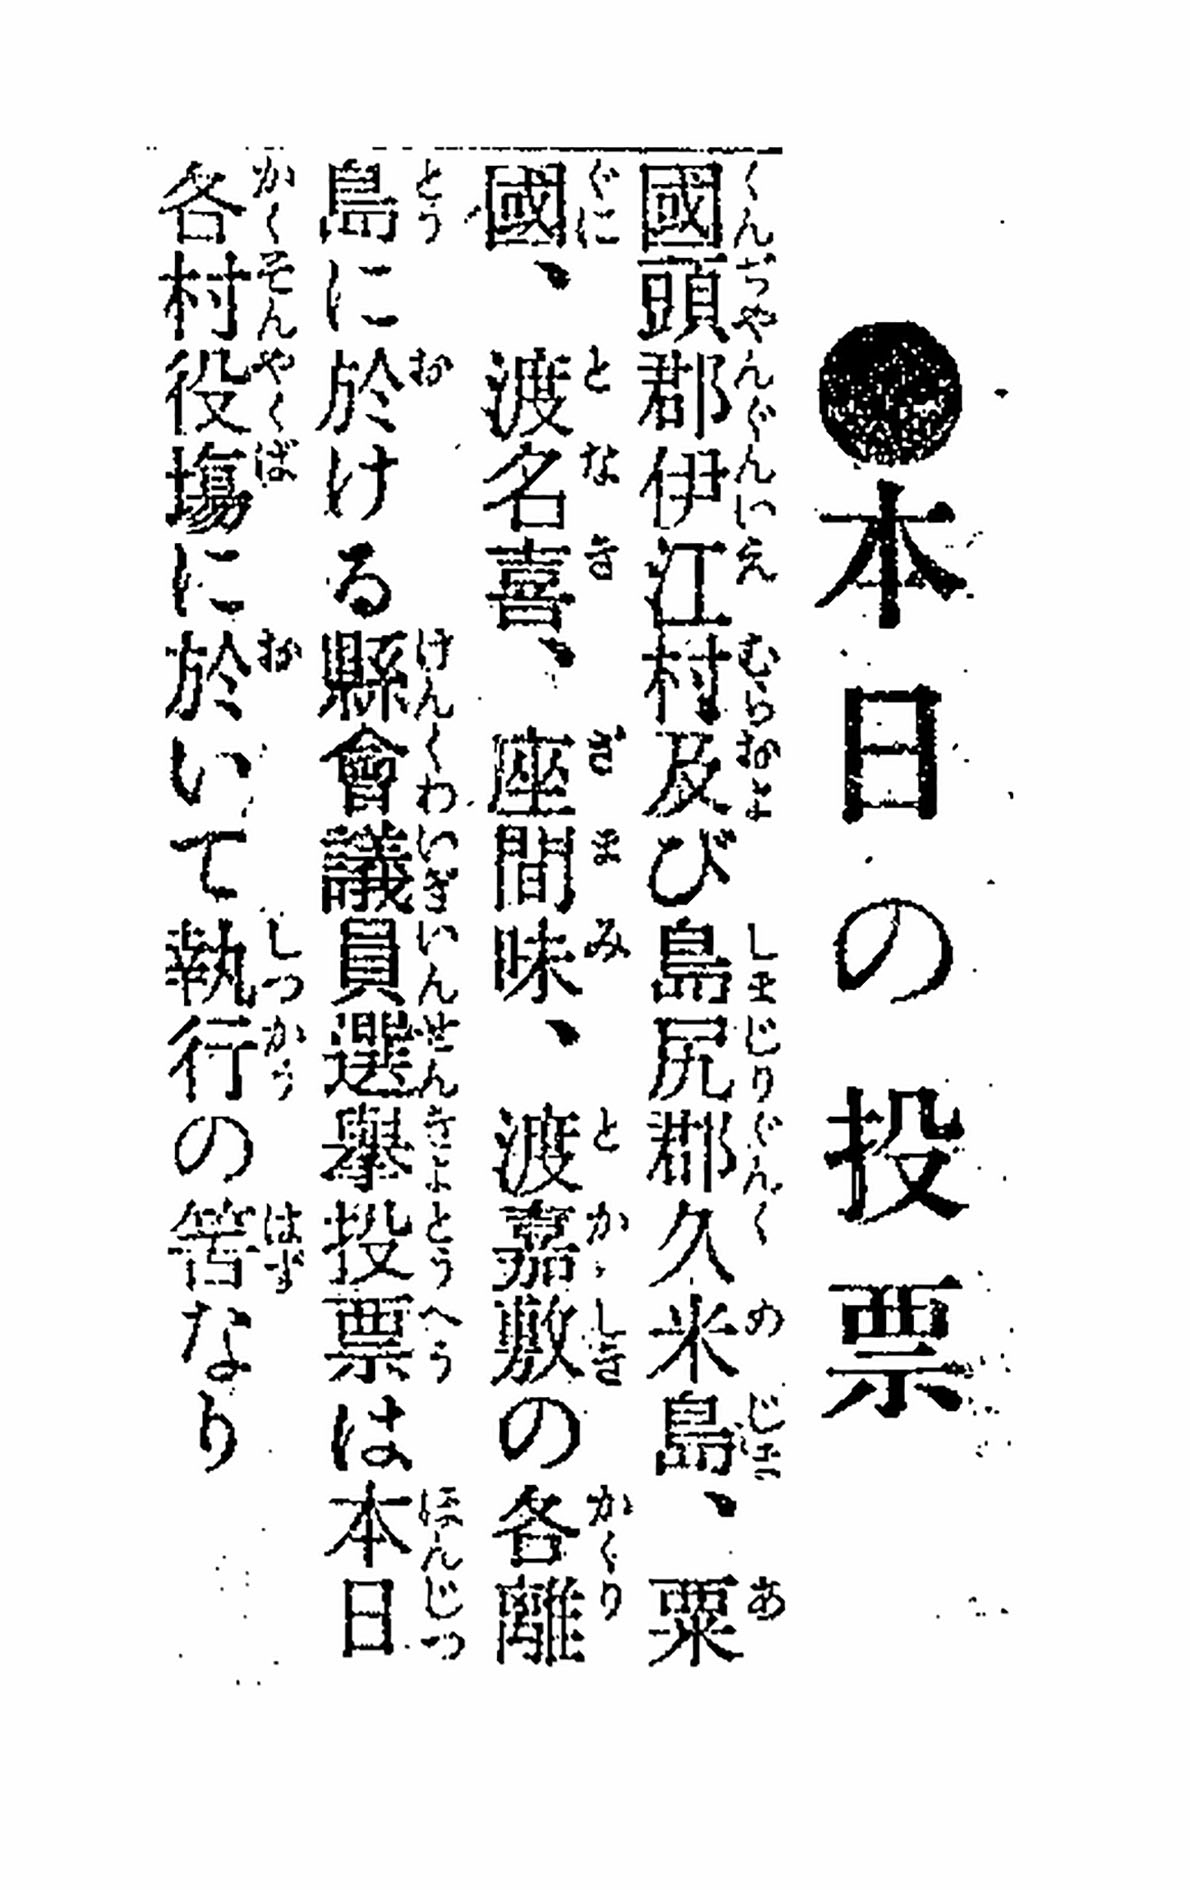 ●本日の投票
國頭郡伊江村及び島尻郡久米島、粟
國、渡名喜、座間味、渡嘉敷の各離
島に於ける縣會議員選擧投票は本日
各村役塲に於いて執行の筈なり